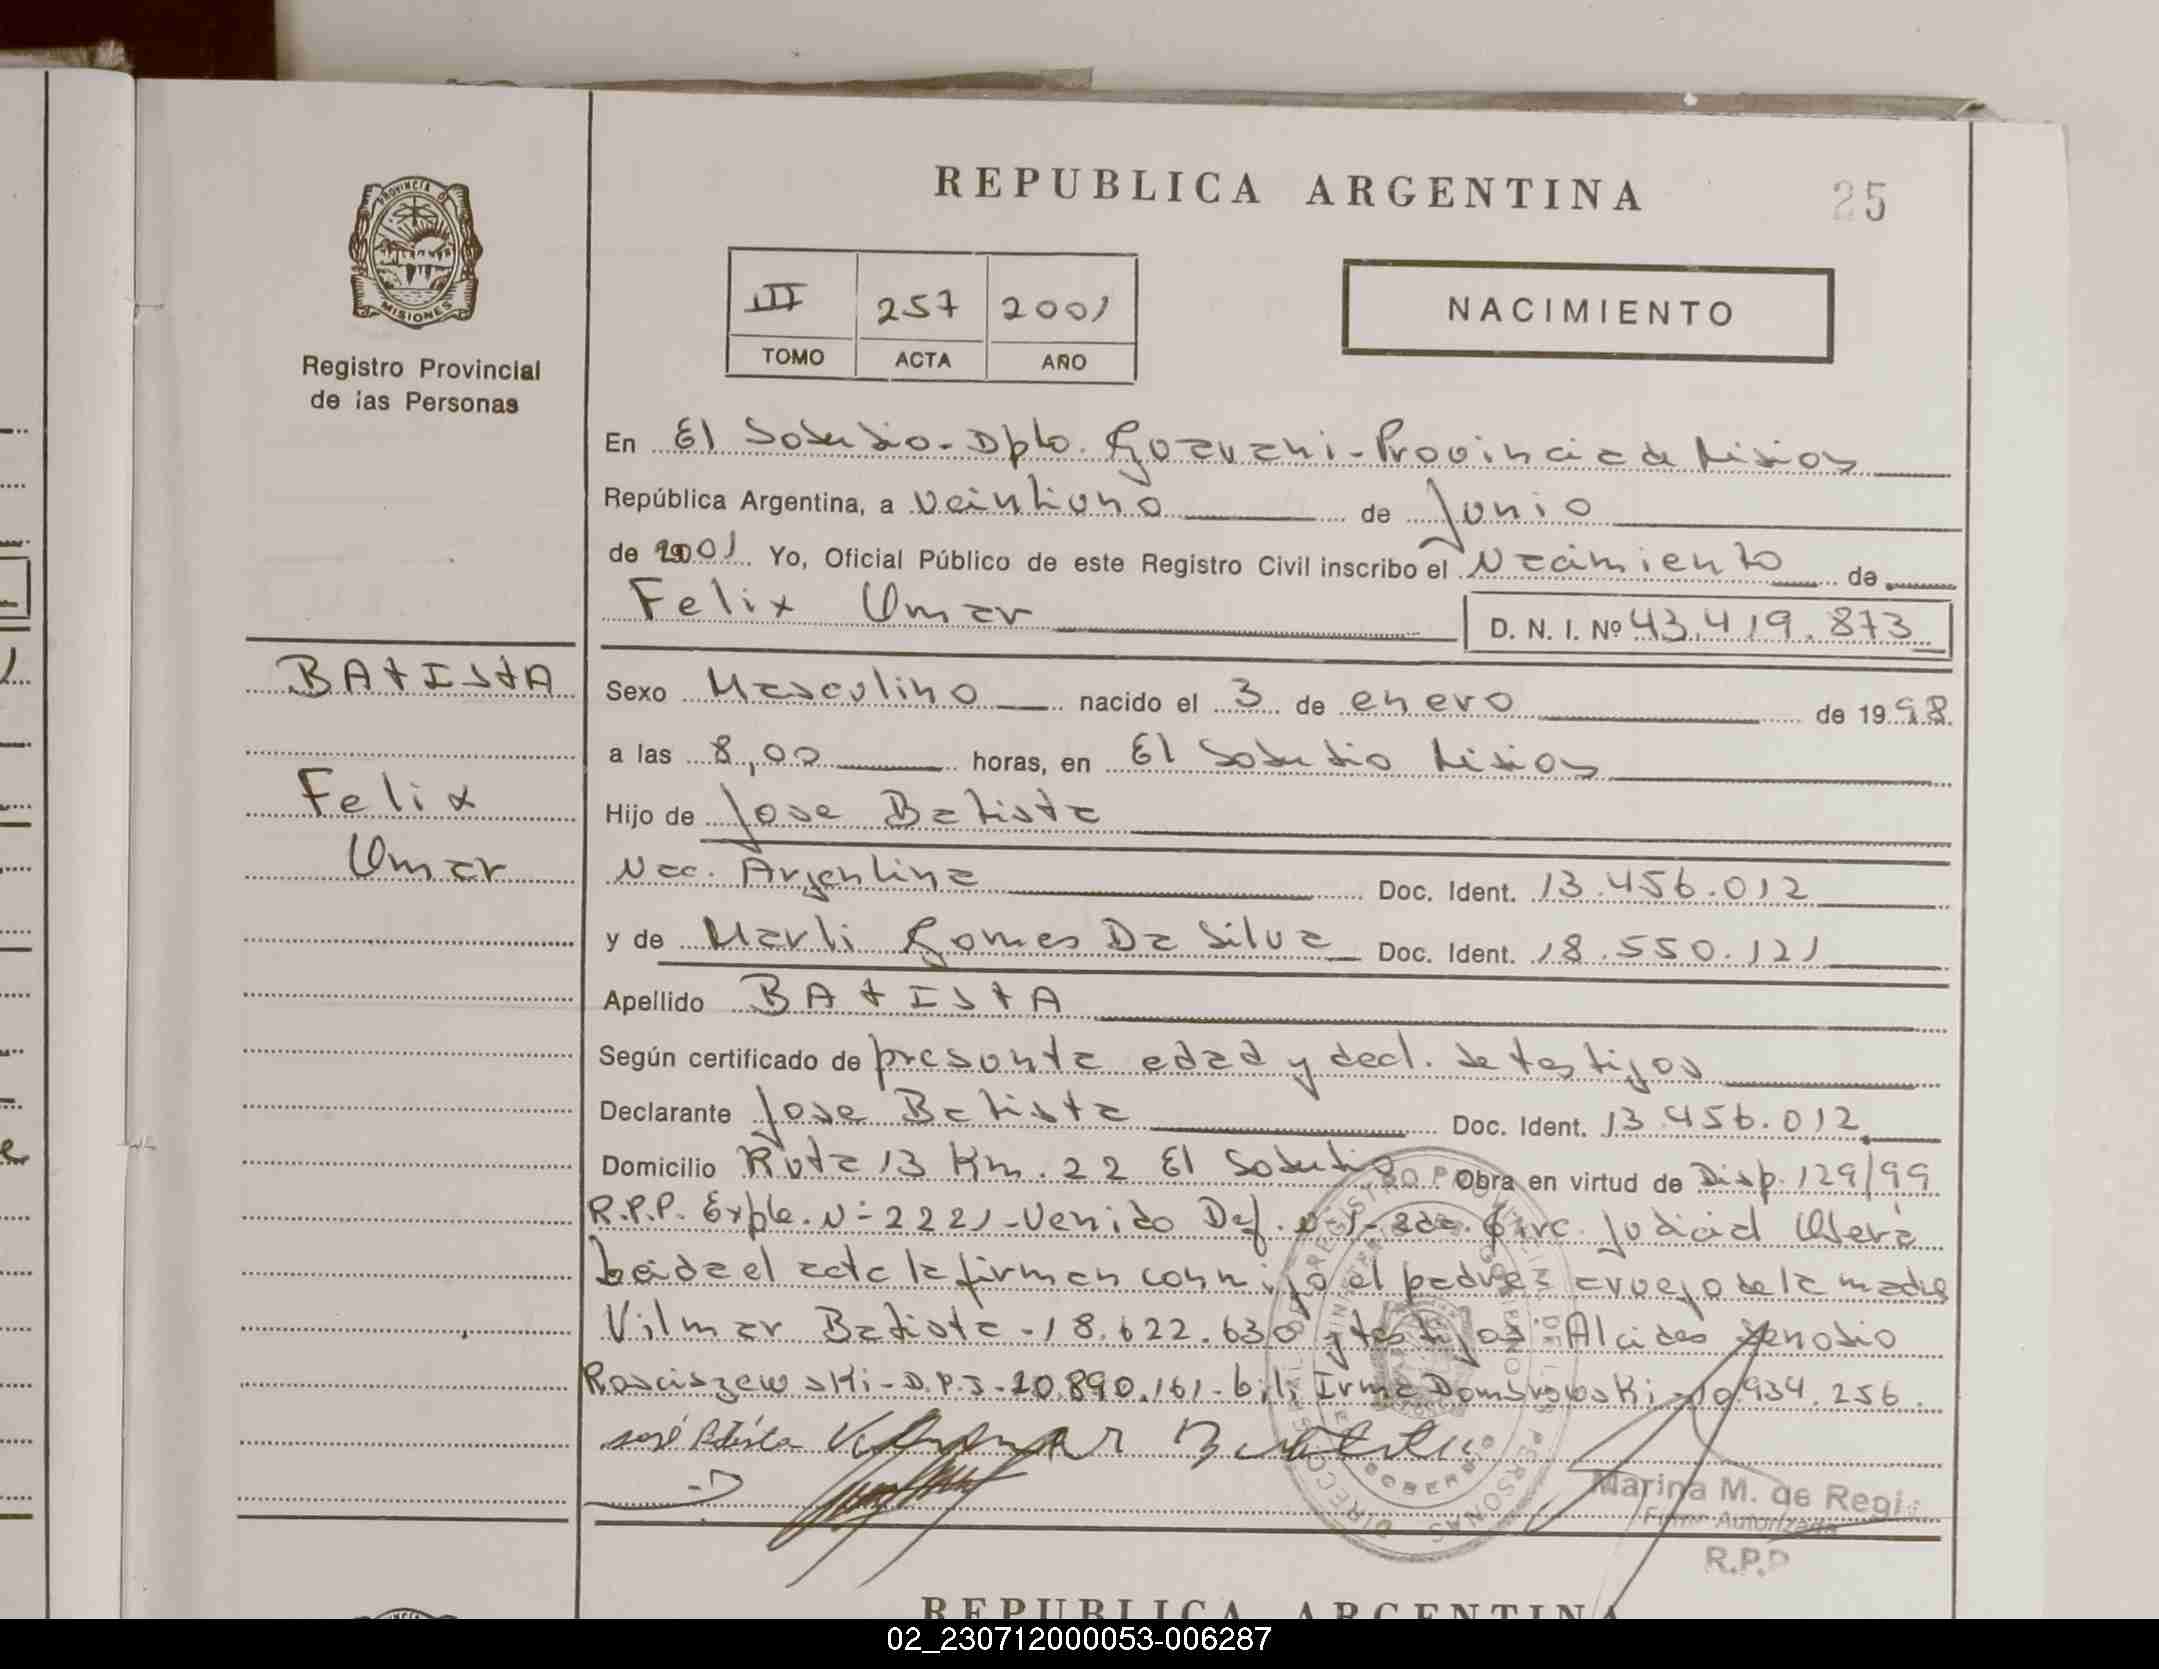 REPUBLICA ARGENTINA
25
PROVINCIA DE
MISIONES
Registro Provincial
de las Personas
III 257 2001
TOMO ACTA AÑO
NACIMIENTO
En El Soberbio - Dpto. Guarani - Provincia de Misiones
República Argentina, a veintiuno de Junio
de 2001 Yo, Oficial Público de este Registro Civil inscribo el Nacimiento de
Felix Omar D. N. I. Nº 43.419.873
BATISTA
Felix
Omar
Sexo Masculino nacido el 3 de enero de 1998.
a las 8,00 horas, en El Soberbio Misiones
Hijo de Jose Batista
Nac. Argentina Doc. Ident. 13.456.012
y de Marli Gomes Da Silva Doc. Ident. 18.550.121
Apellido BATISTA
Según certificado de presunta edad y decl. de testigos
Declarante Jose Batista Doc. Ident. 13.456.012.
Domicilio Ruta 13 Km. 22 El Soberbio Obra en virtud de Disp. 129/99
R.P.P. Expte. Nº 2221 - Venido Def. Nº 1 - 2da. Circ. Judicial Oberá
Leida el acta la firman conmigo el padre a ruego de la madre
Vilmar Batista - 18.622.630 y testigos: Alcides Zenobio
Rosciszewski - D.P.S - 10.890.161 - Irma Dombrowski - 10.934.256.
José Batista Vilmar Batista
Marina M. de Regi
Firma Autorizada
R.P.P
REPUBLICA ARGENTINA
02_230712000053-006287